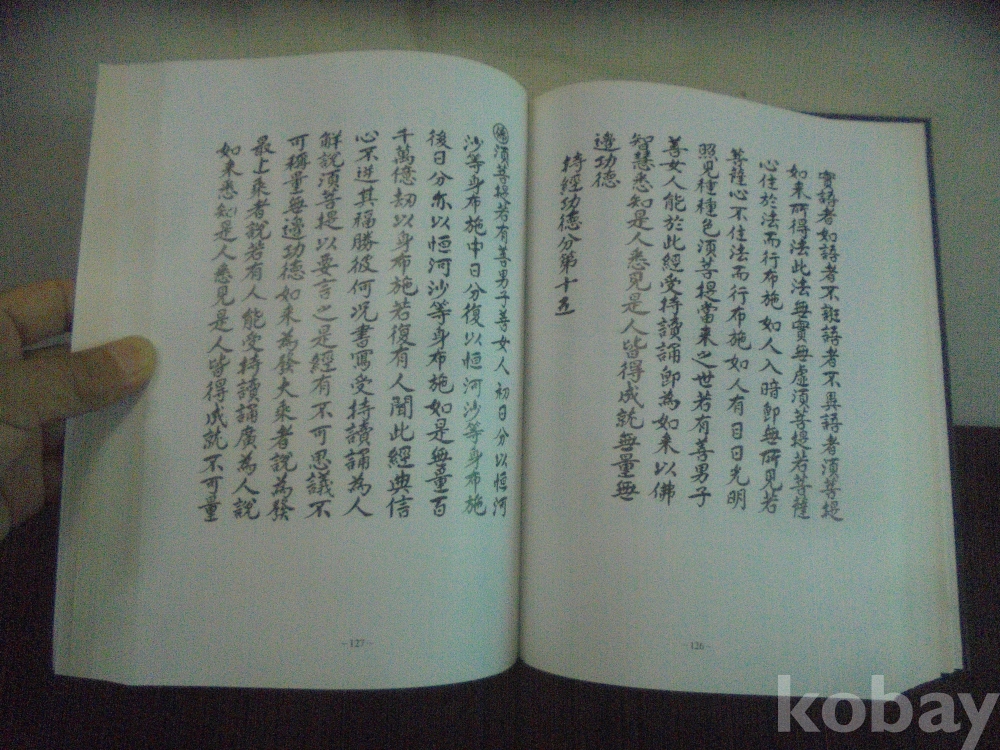 實語者如語者不誑語者不異語者須菩提
如来所得法此法無實無虛須菩提若菩薩
心住於法而行布施如人入暗即無所見若
菩薩心不住法而行布施如人有目日光明
照見種種色須菩提當来之世若有善男子
善女人能於此經受持讀誦即為如来以佛
智慧悉知是人悉見是人皆得成就無量無
邊功德
持經功德分第十五
- 126 -
須菩提若有善男子善女人初日分以恒河
沙等身布施中日分復以恒河沙等身布施
後日分亦以恒河沙等身布施如是無量百
千萬億劫以身布施若復有人聞此經典信
心不逆其福勝彼何况書寫受持讀誦為人
解說須菩提以要言之是經有不可思議不
可稱量無邊功德如来為發大乘者說為發
最上乘者說若有人能受持讀誦廣為人說
如来悉知是人悉見是人皆得成就不可量
- 127 -
kobay